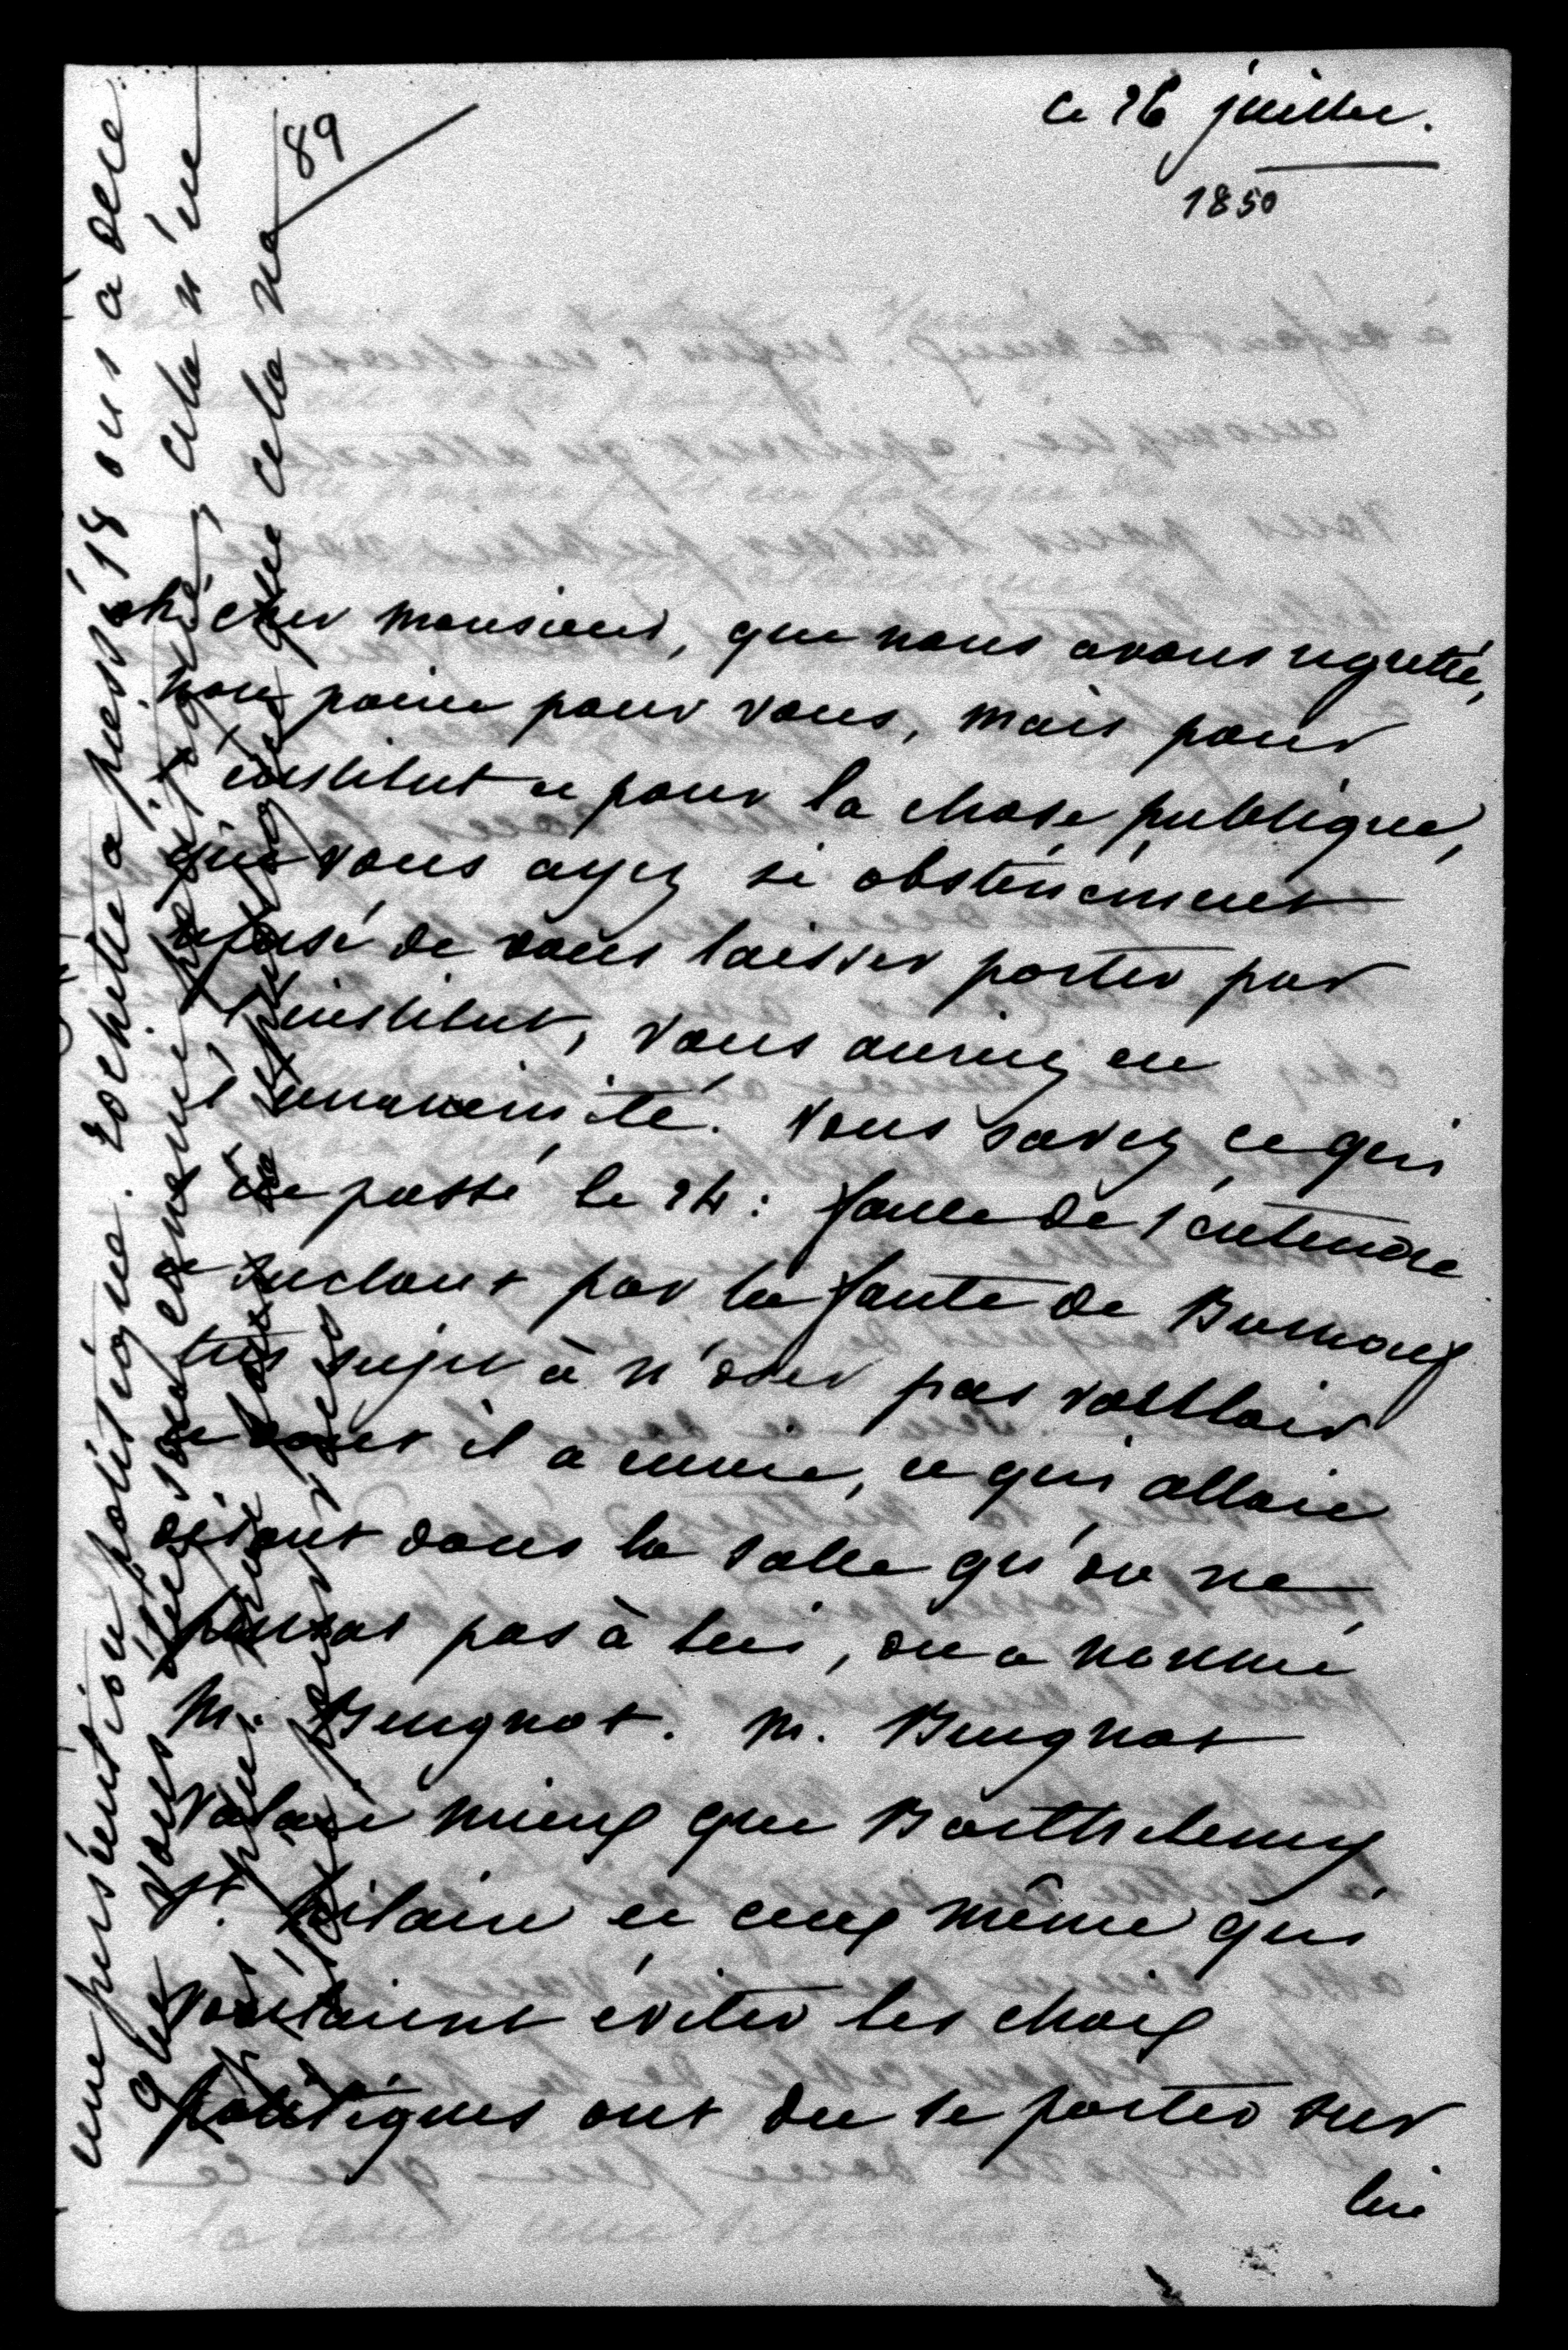 89
ce 26 juillet.
1850
ah! cher monsieur, que nous avons regretté,
non point pour vous, mais pour
l'institut et pour la chose publique,
que vous ayez si obstinément
refusé de vous laisser porter par
l'institut, vous auriez eu
l'unanimité. vous savez ce qui
est passé le 24: faute de s'entendre
et surtout par la faute de Burnouf
très sujet à n'oser pas vouloir
ce dont il a envie, et qui allait
disant dans la salle qu'on ne
pensat pas à lui, on a nommé
M. Beugnot. M. Beugnot
valait mieux que Barthelemy
St. hilaire et ceux même qui
voulaient éviter les choix
politiques ont du se porter sur
lui
une persécution politique. rochette a passé 18 ans à dire
que vous étiez cela n'est
que cela ne